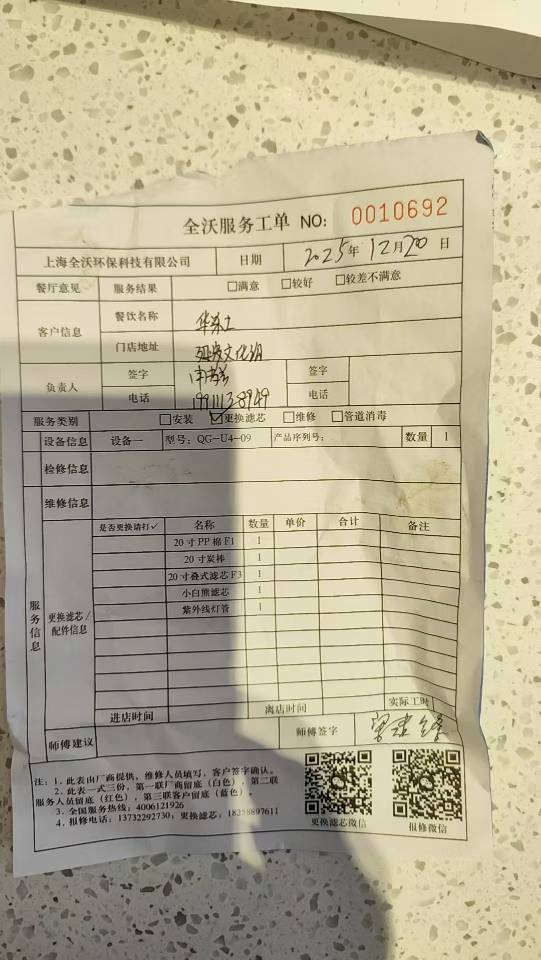 全沃服务工单 NO: 0010692
上海全沃环保科技有限公司 日期 2025年12月20日
餐厅意见 服务结果 □满意 □较好 □较差不满意
客户信息 餐饮名称
门店地址
负责人 签字 签字
电话 电话
服务类别 □安装 ☑更换滤芯 □维修 □管道消毒
设备信息 设备一 型号: QG-U4-09 产品序列号: 数量 1
检修信息
维修信息
服务信息
更换滤芯/配件信息
是否更换请打✓ 名称 数量 单价 合计 备注
20寸PP棉F1 1
20寸炭棒 1
20寸叠式滤芯F3 1
小白熊滤芯 1
紫外线灯管 1
进店时间 离店时间 实际工时
师傅建议 师傅签字
注: 1、此表由厂商提供, 维修人员填写, 客户签字确认。
2、此表一式三份, 第一联厂商留底(白色), 第二联
服务人员留底(红色), 第三联客户留底(蓝色)。
3、全国服务热线: 4006121926
4、报修电话: 13732292730, 更换滤芯: 18258897611
更换滤芯微信 报修微信